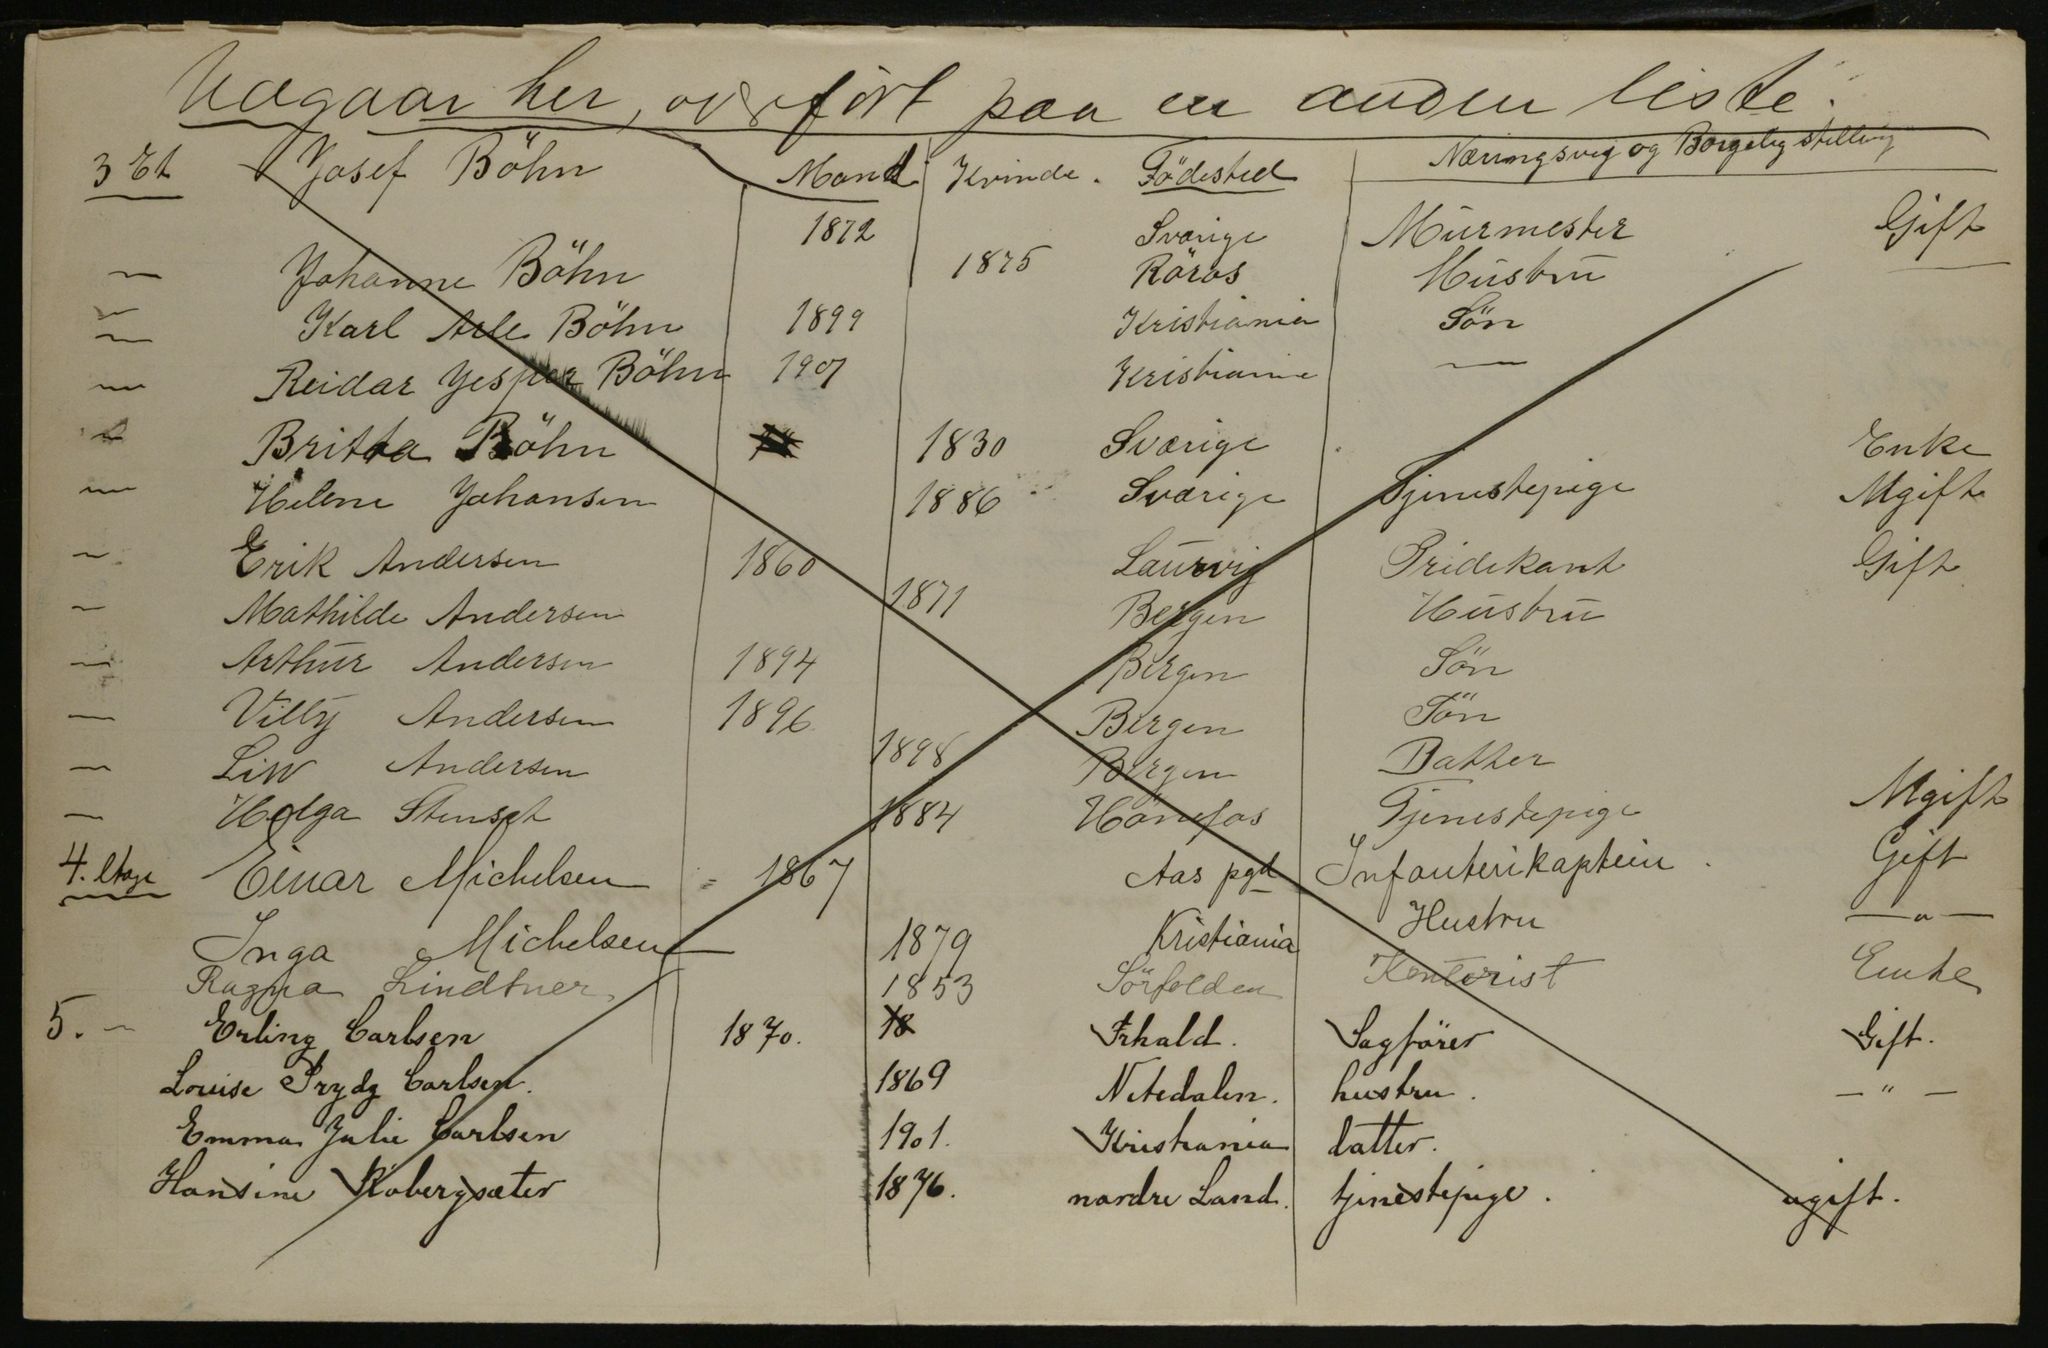 Udgaar her, overført paa en anden liste.
3 Et Josef Böhn Mand Kvinde. Födested Næringsveg og Borgelig stilling
1872 Sverige Murmester Gift
— Johanne Böhn 1875 Röros Hustru
— Karl Arle Böhn 1899 Kristiania Sön
— Reidar Jesper Böhn 1907 Kristiania —
— Britta Böhn 1830 Sværige Enke
— Helene Johansen 1886 Sværige Tjenestepige Ugift
— Erik Andersen 1860 Laurvig Prідikant Gift
— Mathilde Andersen 1871 Bergen Hustru
— Arthur Andersen 1894 Bergen Sön
— Villy Andersen 1896 Bergen Sön
— Liw Andersen 1898 Bergen Datter
— Helga Stenset 1884 Hönefos Tjenestepige Ugift
4. Etage Einar Michelsen 1867 Aas pgd Infanterikaptein Gift
Inga Michelsen 1879 Kristiania Hustru —"—
Ragna Lindtner 1853 Sörfolden Kontorist Enke
5. — Erling Carlsen 1870. 18 Frhald. Sagförer Gift.
Louise Prydz Carlsen. 1869 Nitedalen. hustru. —"—
Emma Julie Carlsen 1901. Kristiania datter.
Hansine Robergsæter 1876. nordre Land. tjenestepige. ugift.